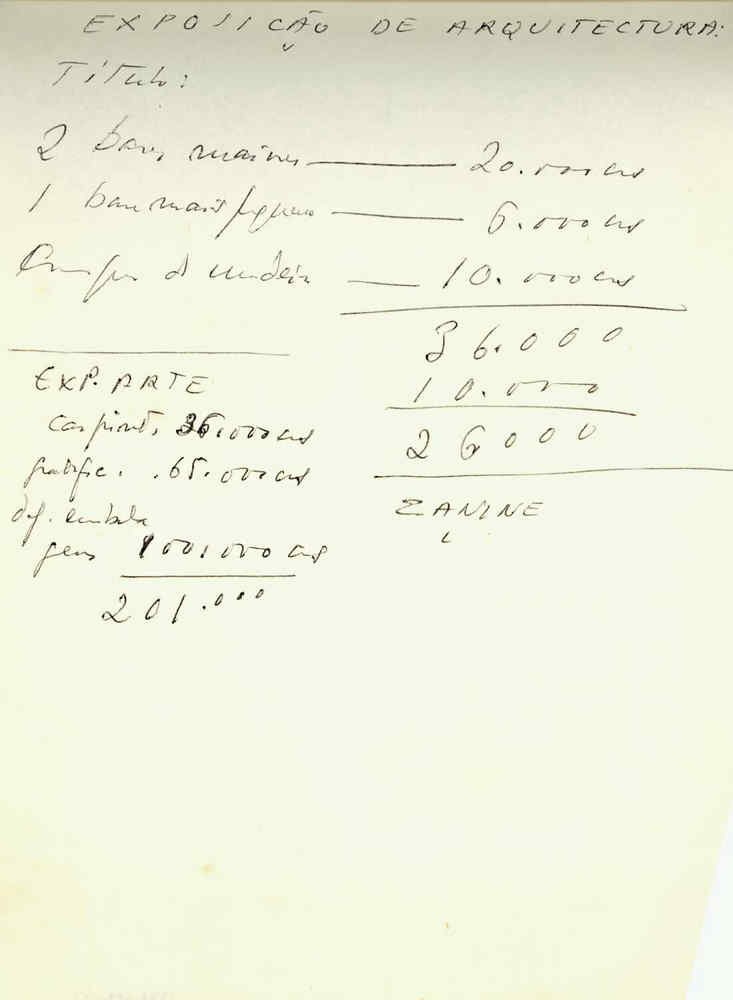 EXPOSIÇÃO DE ARQUITECTURA:
Título:
2 bases maiores — 20.000 cr
1 base mais pequena — 6.000 cr
de madeira — 10.000 cr
36.000
10.000
26000
ZANINE
EXP. ARTE
Carpint. 36.000 cr
gratific. 65.000 cr
def. embala
gens 100.000 cr
201.000